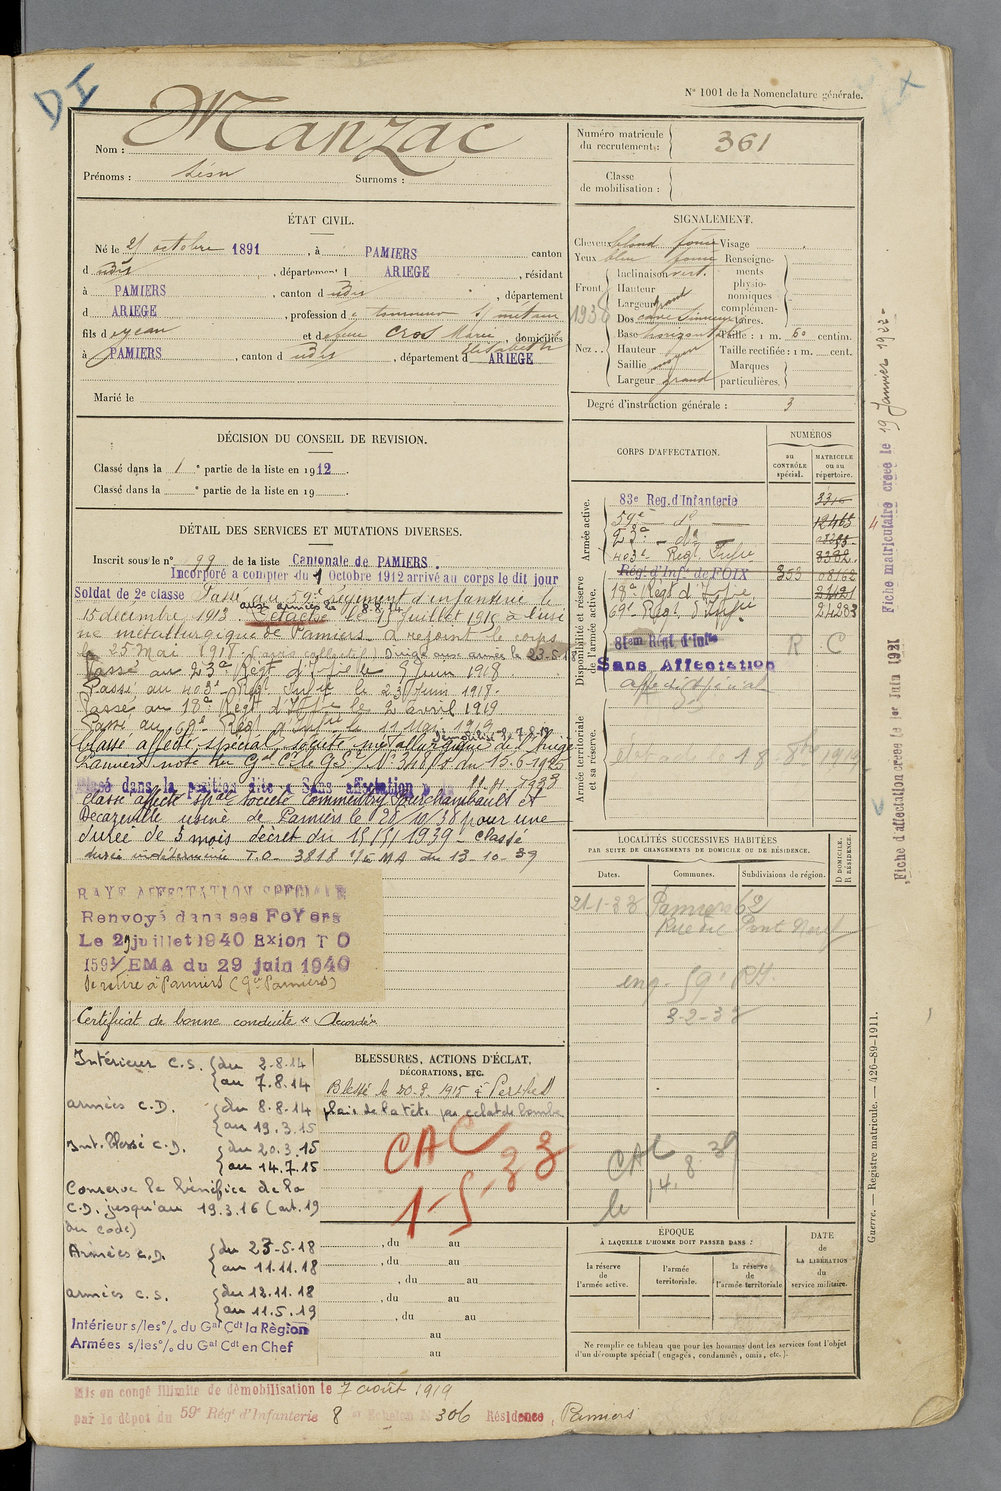 DI
N° 1001 de la Nomenclature générale.
Nom : Manzac
Prénoms : Léon Surnoms :
Numéro matricule du recrutement : 361
Classe de mobilisation :
ÉTAT CIVIL.
Né le 21 octobre 1891, à PAMIERS canton
d udis, département d ARIEGE, résidant
à PAMIERS, canton d udis, département
d ARIEGE, profession de tourneur s/ métaux
fils de Jean et de feue Cros Marie Elisabeth domiciliés
à PAMIERS, canton d udis, département d ARIEGE
Marié le
SIGNALEMENT.
Cheveux blond foncé Visage
Yeux bleu foncé
Front Inclinaison vert.
Hauteur
Largeur grand
1938
Nez Dos cave sinueux
Base horizontale
Hauteur moyen
Saillie
Largeur grand
Renseignements physionomiques complémentaires.
Taille : 1 m. 60 centim.
Taille rectifiée : 1 m. cent.
Marques particulières.
Degré d'instruction générale : 3
DÉCISION DU CONSEIL DE REVISION.
Classé dans la 1e partie de la liste en 1912.
Classé dans la e partie de la liste en 19
DÉTAIL DES SERVICES ET MUTATIONS DIVERSES.
Inscrit sous le n° 99 de la liste Cantonale de PAMIERS.
Incorporé à compter du 1 Octobre 1912 arrivé au corps le dit jour
Soldat de 2e classe Passé au 59e régiment d'infanterie le
aux armées le 8.8.14
15 décembre 1913. Détaché le 15 juillet 1915 à l'usi
ne métallurgique de Pamiers. A rejoint le corps
le 25 Mai 1918 Dirigé aux armées le 23-5-18
Passé au 23e Régt d'Infie le 9 Juin 1918
Passé au 403e Régt Infie le 23 Juin 1918.
Passé au 18e Régt d'Infie le 2 avril 1919
Passé au 69e Régt d'Infie le 11 Mai 1919
Classé affecté spécial, société métallurgique de l'Ariège
Pamiers note du Gal Ct le G 5e N° 348/S du 15-6-1925
Placé dans la position dite « Sans affectation »
Classé affecté spal société Commentry Fourchambault et
Decazeville usine de Pamiers le 28/10/38 pour une
durée de 3 mois décret du 1939 - classé
durée indéterminée T.O. 3818 EMA du 13-10-39
RAYE AFFECTATION SPECIALE
Renvoyé dans ses FoYers
Le 27 juillet 1940 Exion T O
1591/EMA du 29 juin 1940
Se retire à Pamiers (Gd Pamiers)
Certificat de bonne conduite « Accordé »
Intérieur C.S. du 2.8.14
au 7.8.14
armées C.D. du 8.8.14
au 19.3.15
Int. Blessé C.D. du 20.3.15
au 14.7.15
Conserve le bénéfice de la
C.D. jusqu'au 19.3.16 (art.19
du code)
Armées C.D. du 23-5-18
au 11.11.18
armées C.S. du 12.11.18
au 11.5.19
Intérieur s/les °/. du Gal Cdt la Région
Armées s/les °/. du Gal Cdt en Chef
BLESSURES, ACTIONS D'ÉCLAT,
DÉCORATIONS, ETC.
Blessé le 20.3.1915 à Perthes
plaie de la tête par éclat de bombe
CAC
1-5-33
, du au
, du au
, du au
, du au
, du au
au
au
CORPS D'AFFECTATION.
NUMÉROS
au CONTRÔLE spécial.
MATRICULE ou au répertoire.
Armée active.
83e Reg.d'Infanterie
59e d°
23e d°
403e Régt Infie
Disponibilité et réserve de l'armée active.
Rég. d'Inf. de FOIX 353 08162
18e Régt d'Infie 24121
69e Régt d'Infie 24283
81em Régt d'Infie R C
Sans Affectation
Affecté spécial
Armée territoriale et sa réserve.
18 8bre 1919
LOCALITÉS SUCCESSIVES HABITÉES
PAR SUITE DE CHANGEMENTS DE DOMICILE OU DE RÉSIDENCE.
Dates. Communes. Subdivisions de région. D DOMICILE. R RÉSIDENCE.
21-1-38 Pamiers 62
Rue du Pont Neuf
59e RI.
3-2-38
CAC
le 14.8.39
ÉPOQUE
À LAQUELLE L'HOMME DOIT PASSER DANS :
la réserve de l'armée active.
l'armée territoriale.
la réserve de l'armée territoriale
DATE de LA LIBÉRATION du service militaire.
Ne remplir ce tableau que pour les hommes dont les services font l'objet d'un décompte spécial (engagés, condamnés, omis, etc.).
Mis en congé illimité de démobilisation le 7 août 1919
par le dépot du 59e Rég' d'Infanterie 8 er Echelon N° 306 Résidence, Pamiers
Fiche matriculaire créée le 19 Janvier 1933-
Fiche d'affectation créée le 1er Juin 1921
Guerre. — Registre matricule. — 426-89-1911.